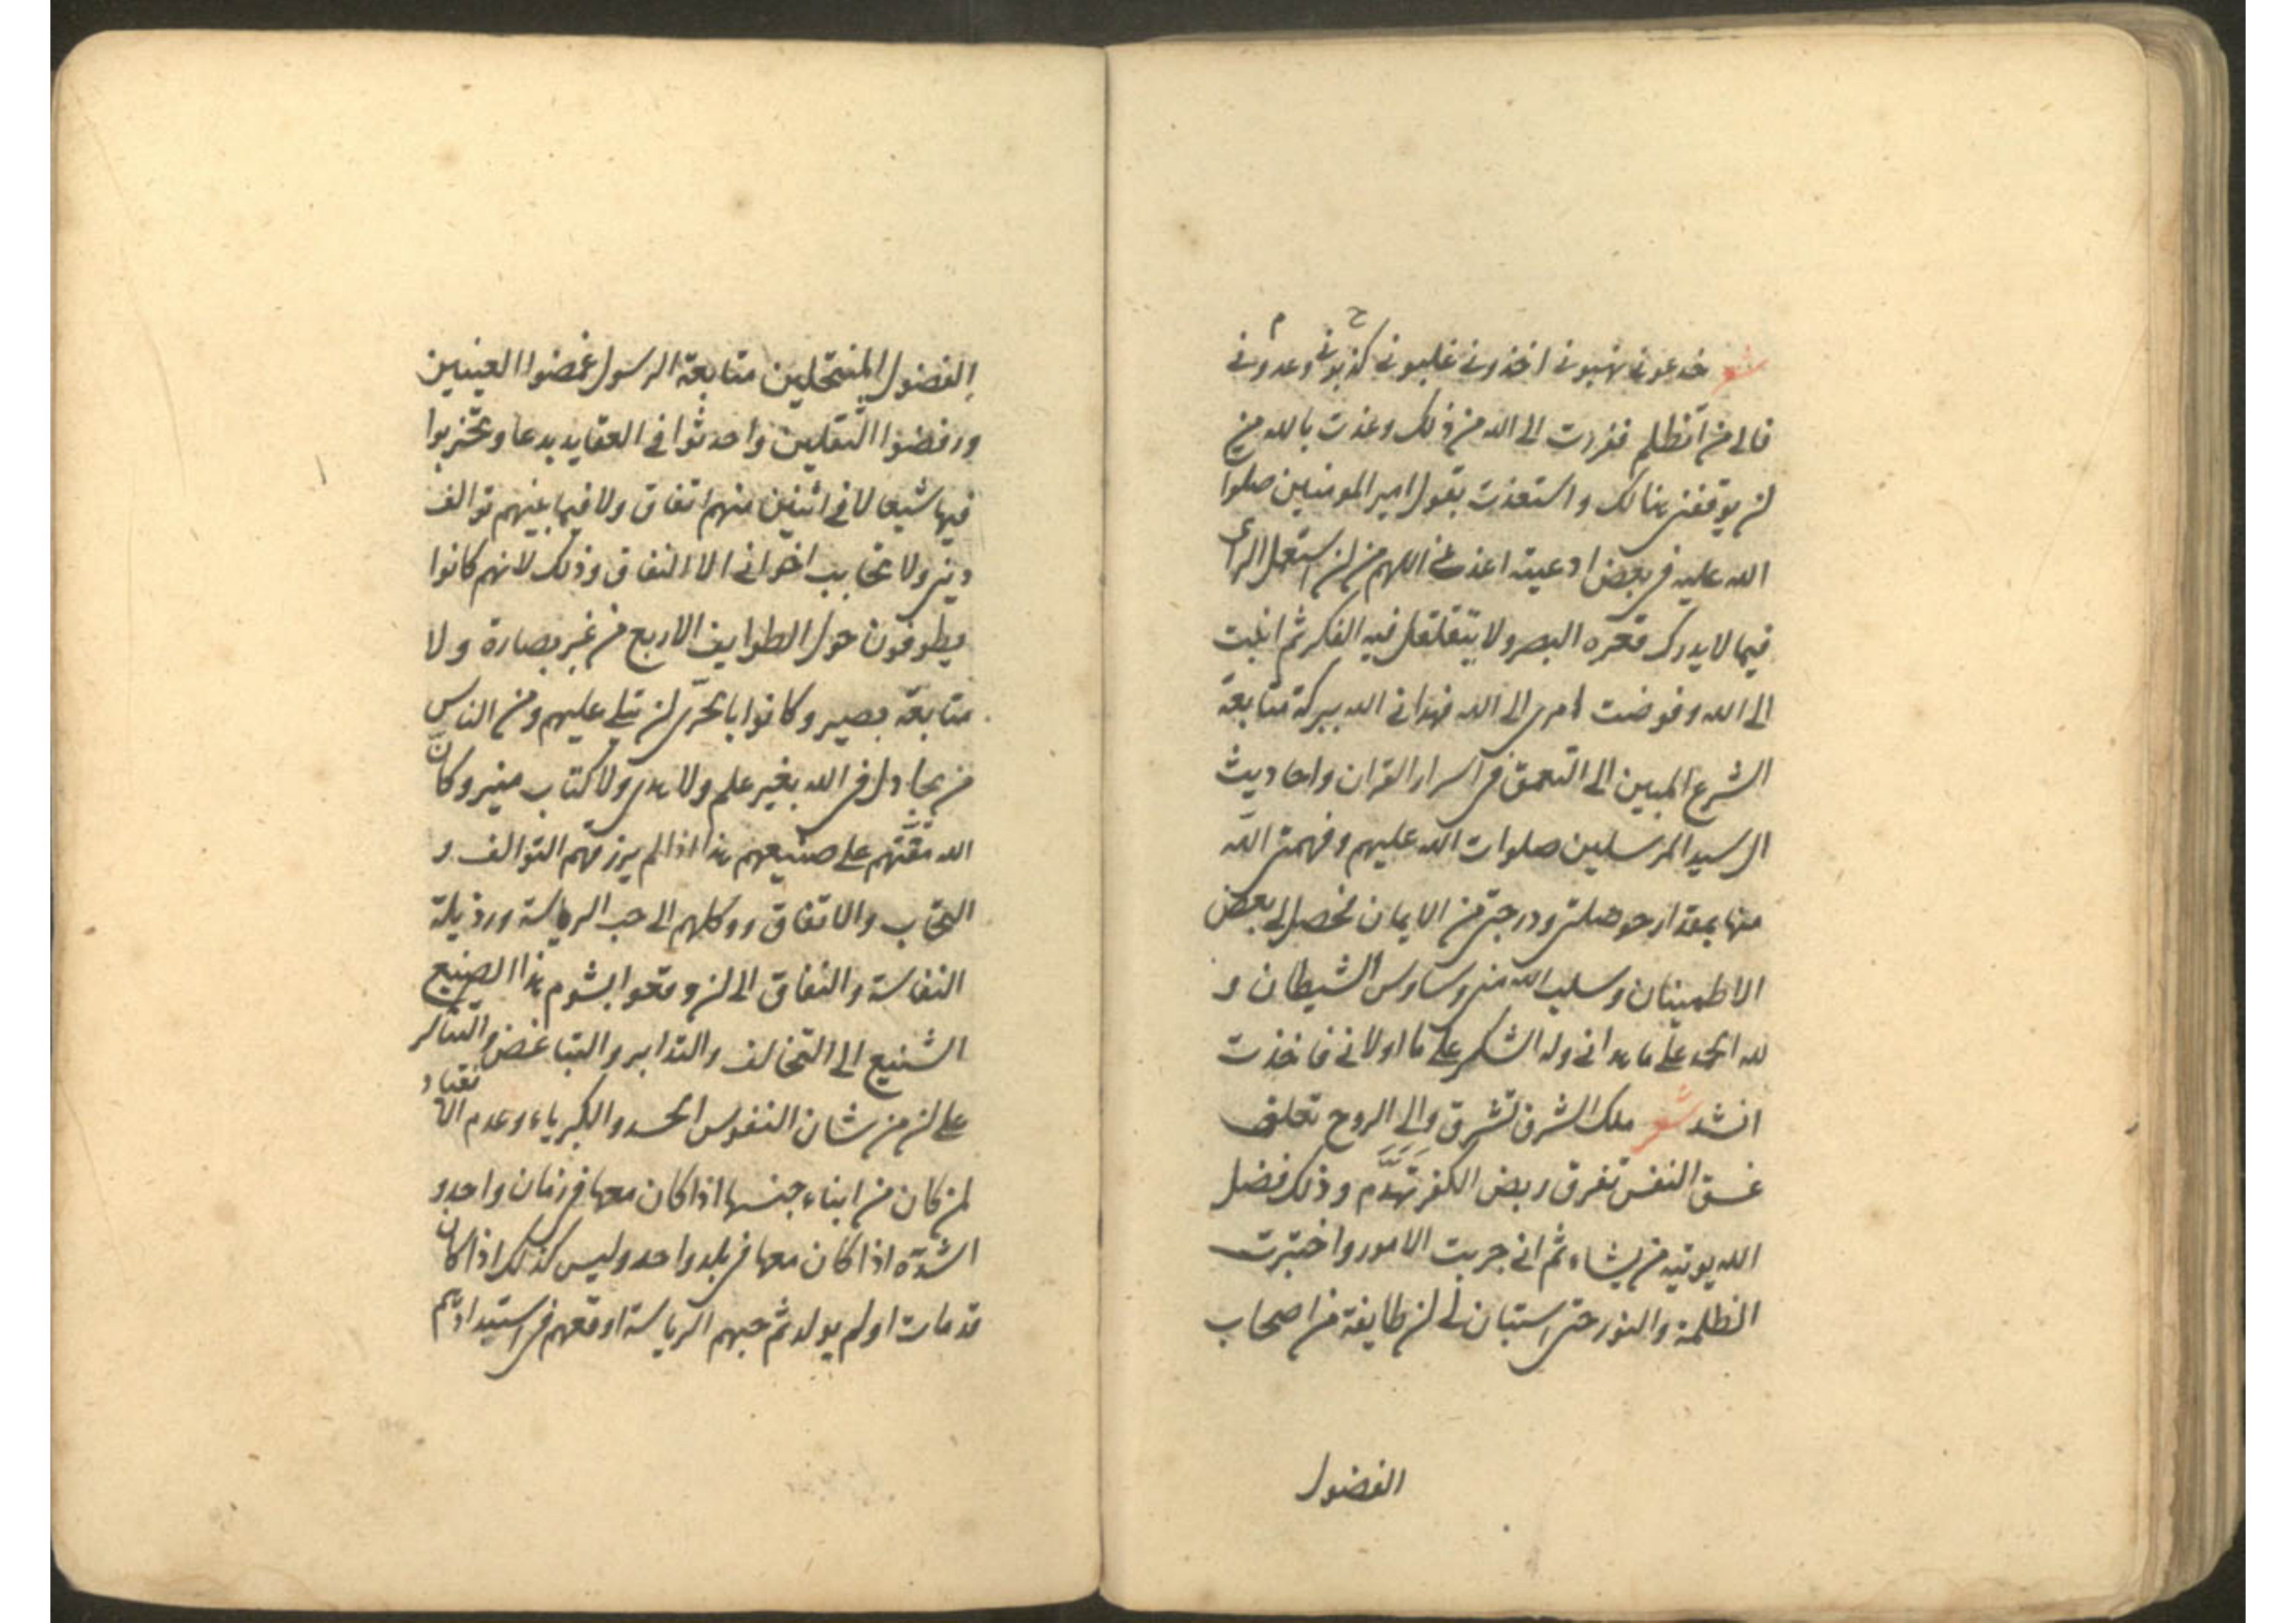 شعر خدعونی نهبونی اخذونی غلبونی کذبونی وعدونی
فالی من اتظلم ففررت الی الله من ذلک وعذت بالله من
ان یوقفنی هنالک واستعذت بقول امیر المومنین صلوا
الله علیه فی بعض ادعیته اعذنی اللهم من ان استعمل الرای
فیما لا یدرک قعره البصر ولا یتغلغل فیه الفکر ثم انبت
الی الله وفوضت امری الی الله فهدانی الله ببرکة متابعة
الشرع المبین الی التعمق فی اسرار القران واحادیث
ال سید المرسلین صلوات الله علیهم وفهمنی الله
منها بمقدار حوصلتی ودرجتی من الایمان فحصل لی بعض
الاطمینان وسلب الله منی وساوس الشیطان و
لله الحمد علی ما هدانی وله الشکر علی ما اولانی فاخذت
انشد شعر ملک الشرق تشرق والی الروح تعلق
غسق النفس تفرق ربض الکفر تهدم وذلک فضل
الله یوتیه من یشاء ثم انی جربت الامور واختبرت
الظلمة والنور حتی استبان لی ان طایفة من اصحاب
الفضول
الفضول المنتحلین متابعة الرسول غمضوا العینین
ورفضوا الثقلین واحدثوا فی العقاید بدعا وتحزبوا
فیها شیعا لا فی اثنین منهم اتفاق ولا فیما بینهم توالف
دینی ولا تحابب اخوانی الا النفاق وذلک لانهم کانوا
یطوفون حول الطوایف الاربع من غیر بصارة ولا
متابعة بصیر وکانوا بالحری ان تتلی علیهم ومن الناس
من یجادل فی الله بغیر علم ولا هدی ولا کتاب منیر وکان
الله مقتهم علی صنیعهم هذا اذا لم یرزقهم التوالف و
التحاب والاتفاق ووکلهم الی حب الریاسة ورذیلة
النفاسة والنفاق الی ان وقعوا بشوم هذا الصنیع
الشنیع الی التخالف والتدابر والتباغض والتناکر
علی ان من شان النفوس الحسد والکبریاء وعدم الانقیاد
لمن کان من ابناء جنسها اذا کان معها فی زمان واحد و
اشده اذا کان معها فی بلد واحد ولیس کذلک اذا کان
قد مات او لم یولد ثم حبهم الریاسة اوقعهم فی استبدادهم